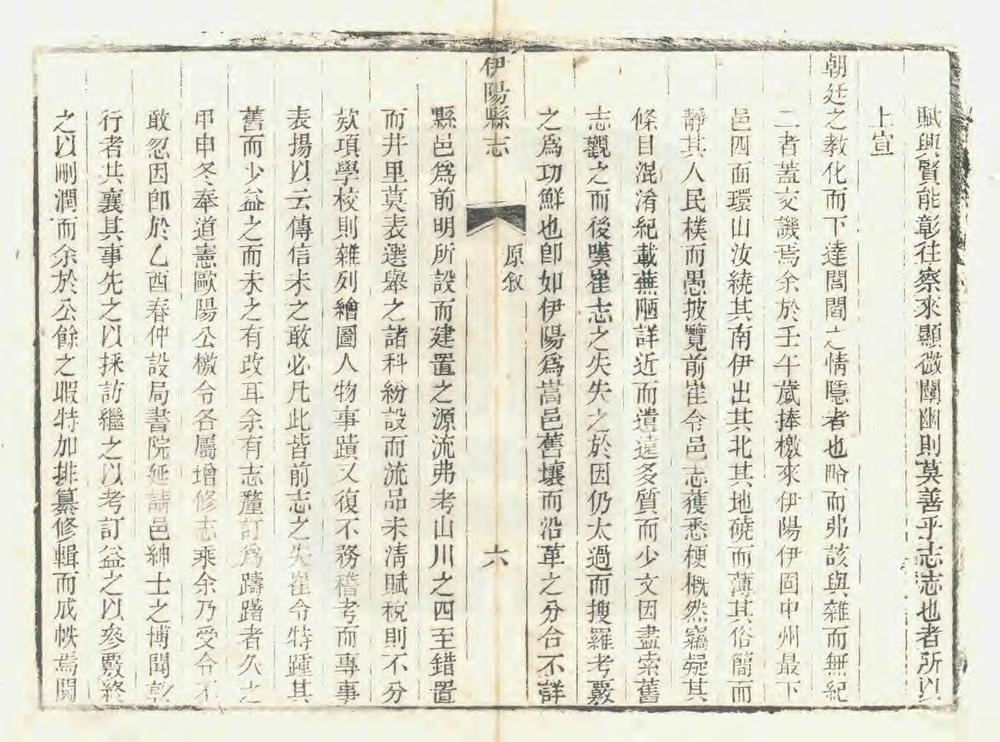 賦興賢能彰往察來顯微闡幽則莫善乎志志也者所以
上宣
朝廷之教化而下達閭閻之情隱者也略而弗該與雜而無紀
二者蓋交譏焉余於壬午歲捧檄來伊陽伊固中州最下
邑四面環山汝繞其南伊出其北其地磽而薄其俗簡而
靜其人民樸而愚披覽前崔令邑志獲悉梗概然竊疑其
條目混淆紀載蕪陋詳近而遺遠多質而少文因盡索舊
志觀之而後嘆崔志之失失之於因仍太過而搜羅考覈
之爲功鮮也卽如伊陽爲嵩邑舊壤而沿革之分合不詳
伊陽縣志
原叙
六
縣邑爲前明所設而建置之源流弗考山川之四至錯置
而井里莫表選舉之諸科紛設而流品未清賦稅則不分
欸項學校則雜列繪圖人物事蹟又復不務稽考而專事
表揚以云傳信未之敢必凡此皆前志之失崔令特踵其
舊而少益之而未之有改耳余有志釐訂爲躊躇者久之
甲申冬奉道憲歐陽公檄令各屬增修志乘余乃受令不
敢忽因卽於乙酉春仲設局書院延請邑紳士之博聞
行者共襄其事先之以採訪繼之以考訂益之以參覈終
之以刪潤而余於公餘之暇特加排纂修輯而成帙焉閱